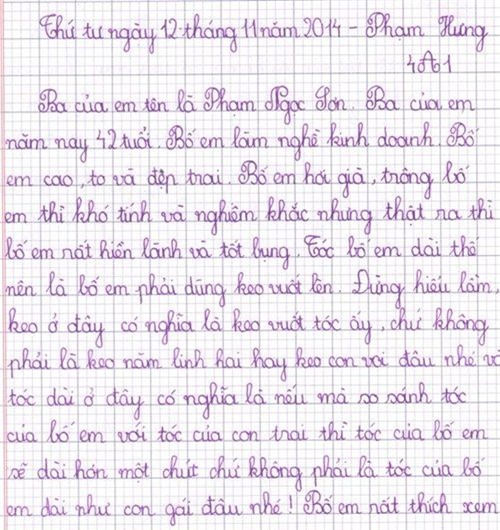 Thứ tư ngày 12 tháng 11 năm 2014 - Phạm Hưng
4A1
Ba của em tên là Phạm Ngọc Sơn. Ba của em
năm nay 42 tuổi. Bố em làm nghề kinh doanh. Bố
em cao, to và đẹp trai. Bố em hơi già, trông bố
em thì khó tính và nghiêm khắc nhưng thật ra thì
bố em rất hiền lành và tốt bụng. Tóc bố em dài thế
nên là bố em phải dùng keo vuốt lên. Đừng hiểu lầm,
keo ở đây có nghĩa là keo vuốt tóc ấy, chứ không
phải là keo năm linh hai hay keo con voi đâu nhé và
tóc dài ở đây có nghĩa là nếu mà so sánh tóc
của bố em với tóc của con trai thì tóc của bố em
sẽ dài hơn một chút chứ không phải là tóc của bố
em dài như con gái đâu nhé! Bố em rất thích xem